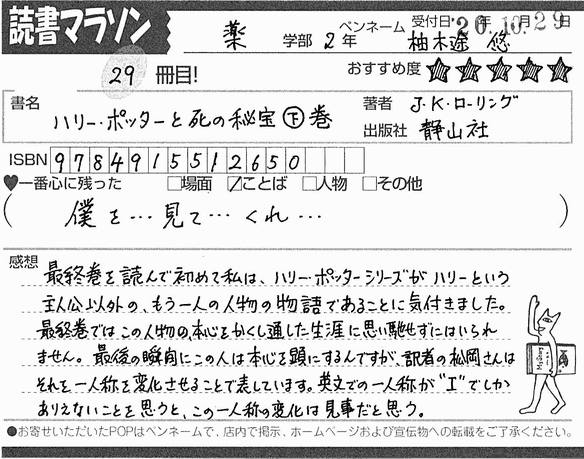 読書マラソン
薬 学部 2年
ペンネーム 柚木遼 悠
受付日 '20年10月29日
29 冊目!
おすすめ度 ★★★★★
書名 ハリー・ポッターと死の秘宝 下巻
著者 J.K.ローリング
出版社 静山社
ISBN 9784915512650
♥一番心に残った □場面 ☑ことば □人物 □その他
(僕を…見て…くれ…)
感想
最終巻を読んで初めて私は、ハリー・ポッターシリーズがハリーという
主人公以外の、もう一人の人物の物語であることに気付きました。
最終巻ではこの人物の、本心をかくし通した生涯に思い馳せずにはいられ
ません。最後の瞬間にこの人は本心を顕にするんですが、訳者の松岡さんは
それを一人称を変化させることで表しています。英文での一人称が"I"でしか
ありえないことを思うと、この一人称の変化は見事だと思う。
●お寄せいただいたPOPはペンネームで、店内で掲示、ホームページおよび宣伝物への転載をご了承ください。